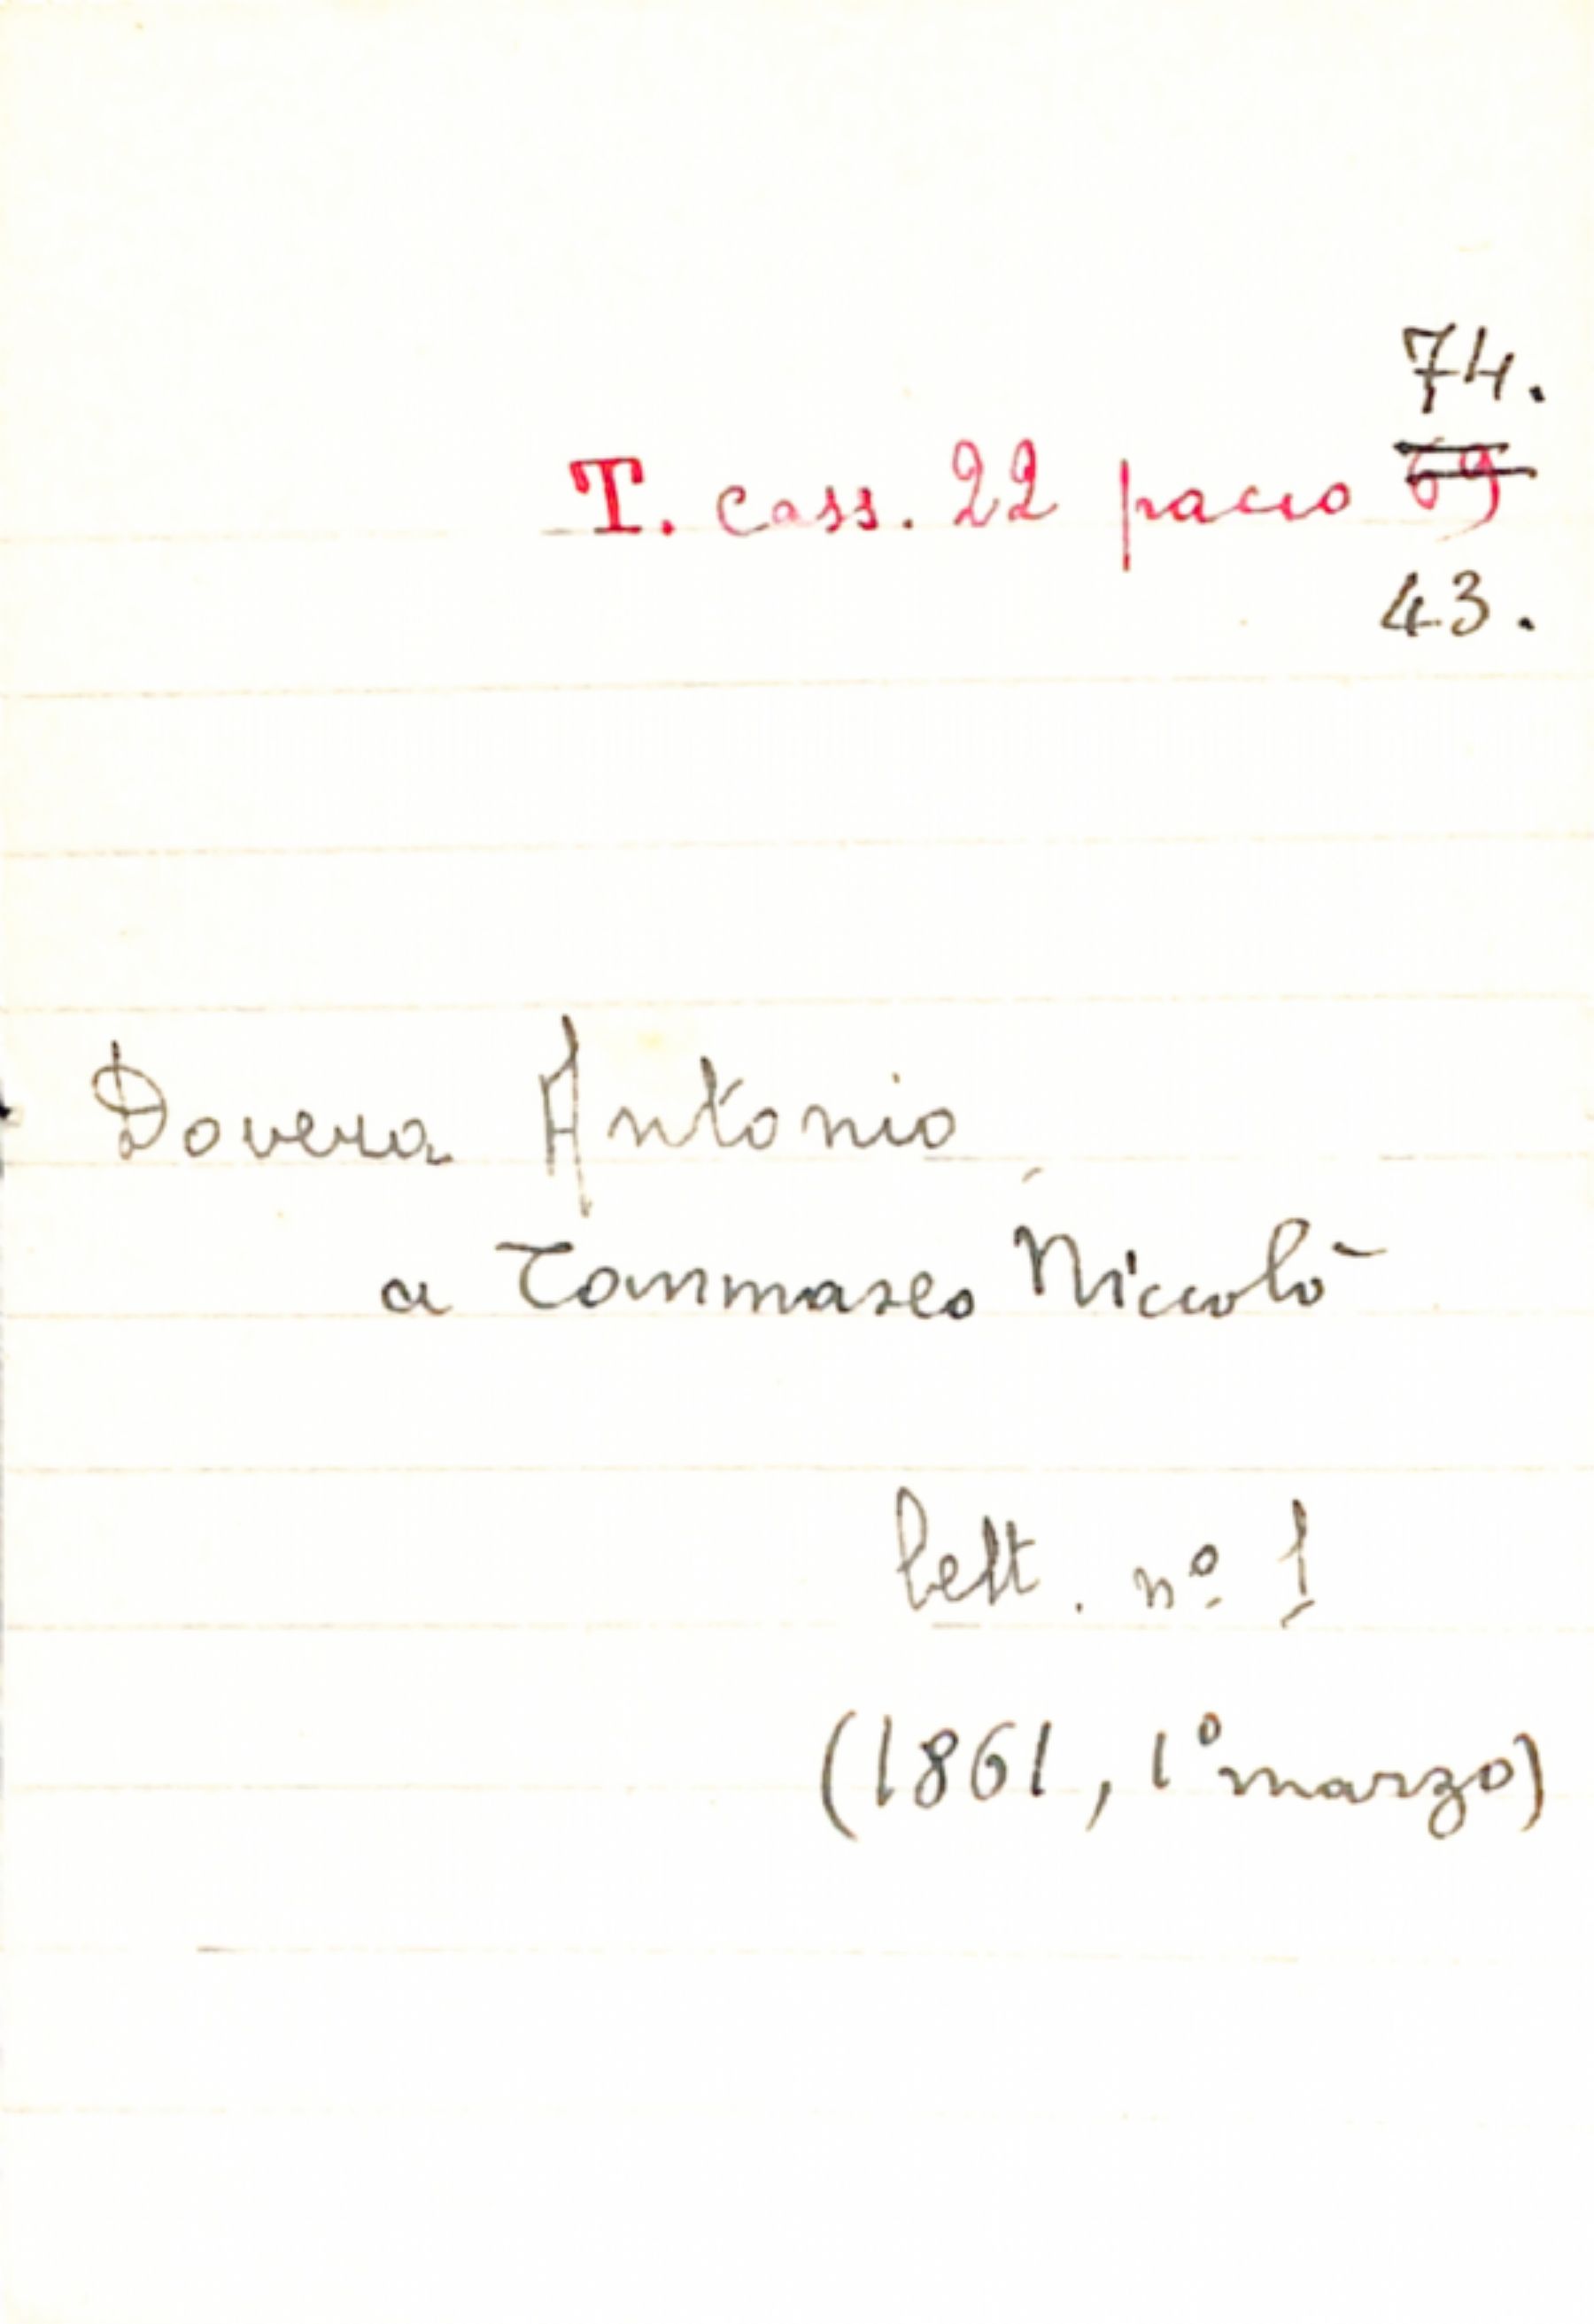 74.
T. cass. 22 pacco 69
43.
Dovera Antonio,
a Tommaseo Niccolò
lett. nº 1
(1861, 1º marzo)